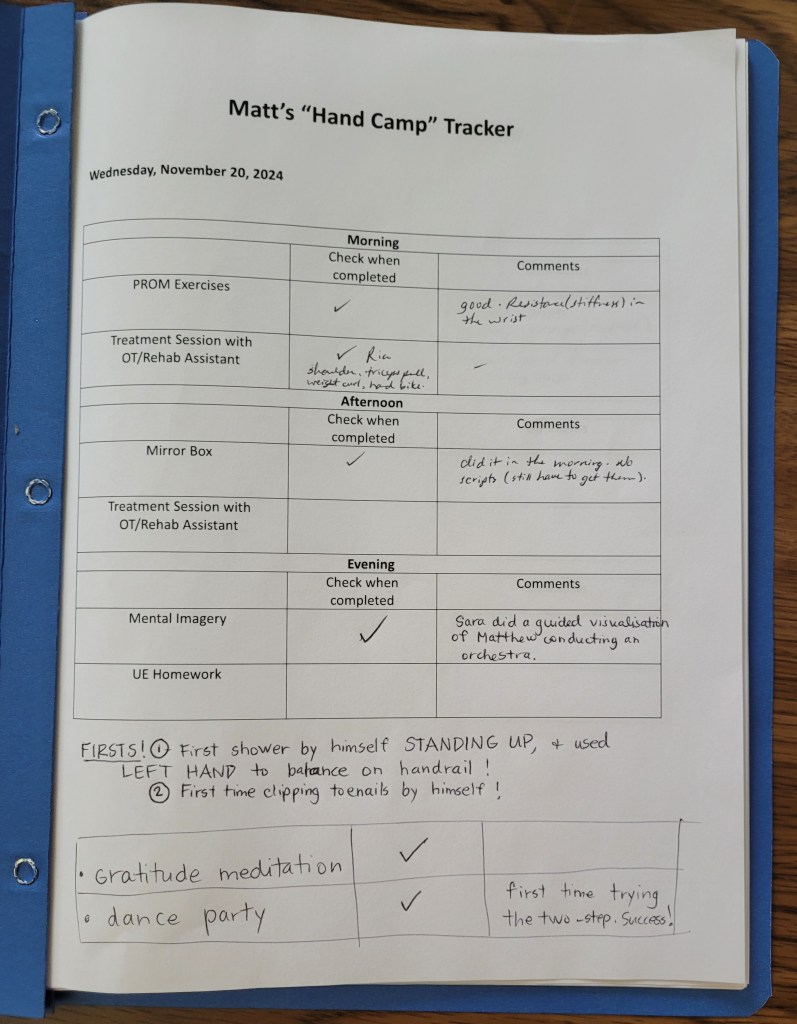 Matt's "Hand Camp" Tracker
Wednesday, November 20, 2024
Morning
Check when
completed
Comments
PROM Exercises
✓
good. Resistance (stiffness) in
the wrist
Treatment Session with
OT/Rehab Assistant
✓ Ria
shoulder, triceps pull,
weight curl, hand bike.
–
Afternoon
Check when
completed
Comments
Mirror Box
✓
did it in the morning. No
scripts (still have to get them).
Treatment Session with
OT/Rehab Assistant
Evening
Check when
completed
Comments
Mental Imagery
✓
Sara did a guided visualisation
of Matthew conducting an
orchestra.
UE Homework
FIRSTS! ① First shower by himself STANDING UP, & used
LEFT HAND to balance on handrail!
② First time clipping toenails by himself!
• Gratitude meditation
✓
• dance party
✓
first time trying
the two-step. Success!